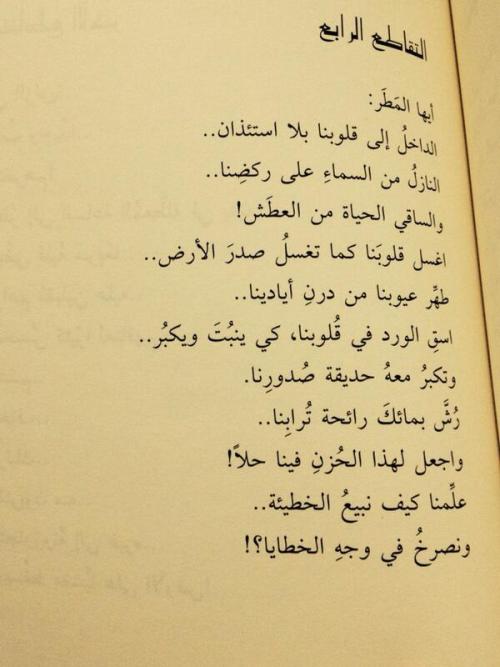 التقاطع الرابع
أيها المَطَر:
الداخلُ إلى قلوبنا بلا استئذان..
النازلُ من السماءِ على ركضِنا..
والساقي الحياة من العطَش!
اغسل قلوبَنا كما تغسلُ صدرَ الأرض..
طهِّر عيوبنا من درنِ أيادينا..
اسقِ الورد في قُلوبنا، كي ينبُتَ ويكبُر..
وتكبرُ معهُ حديقة صُدورِنا.
رُشَّ بمائكَ رائحة تُرابِنا..
واجعل لهذا الحُزنِ فينا حلاً!
علِّمنا كيف نبيعُ الخطيئة..
ونصرخُ في وجهِ الخطايا؟!